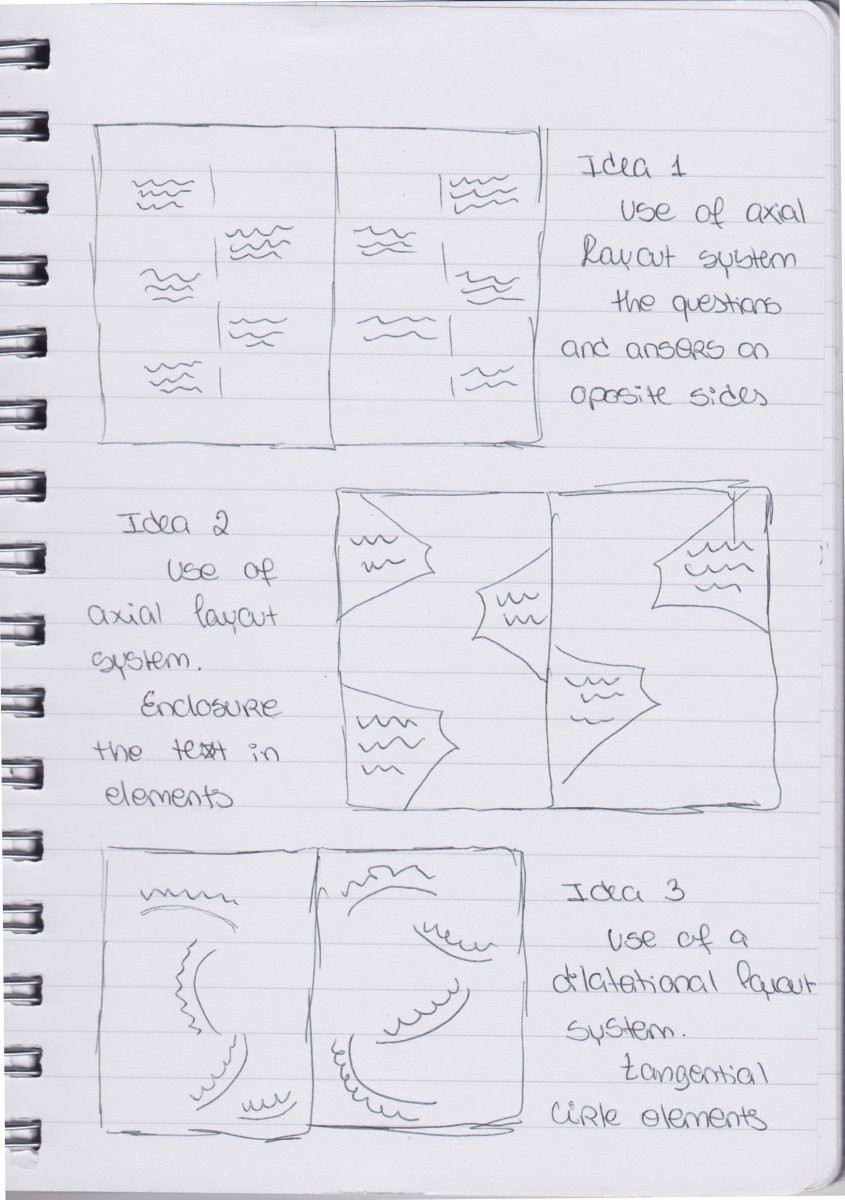 Idea 1
Use of axial
Layout system
the questions
and ansers on
oposite sides
Idea 2
Use of
axial layout
system.
Enclosure
the text in
elements
Idea 3
Use of a
dilatational layout
system.
tangential
cirkle elements